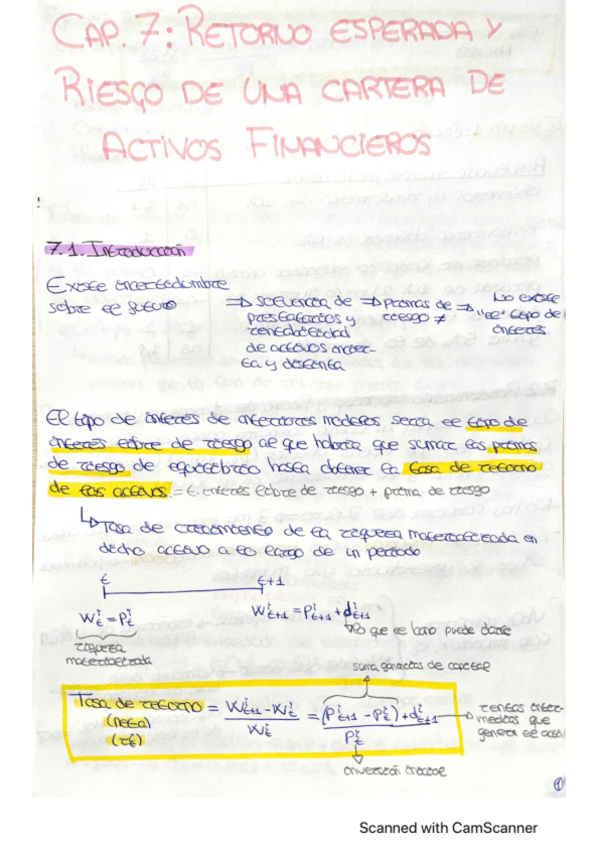 CAP. 7: RETORNO ESPERADA Y
RIESGO DE UNA CARTERA DE
ACTIVOS FINANCIEROS
7.1. Introducción
Existe incertidumbre
sobre el futuro
⇒ solvencia de
prestatarios y
rentabilidad
de activos incier-
ta y distinta
⇒ primas de
riesgo ≠
⇒ No existe
"el" tipo de
interés
El tipo de interés de anteriores modelos sería el tipo de
interés libre de riesgo al que habría que sumar las primas
de riesgo de equilibrio hasta obtener la tasa de retorno
de los activos. = t. interés libre de riesgo + prima de riesgo
↳ Tasa de crecimiento de la riqueza materializada en
dicho activo a lo largo de un periodo
t t+1
W_t^i = P_t^i W_{t+1}^i = P_{t+1}^i + d_{t+1}^i
riqueza
materializada
lo que el bono puede darte
suma ganancias de capital
Tasa de retorno = (W_{t+1}^i - W_t^i) / W_t^i = ((P_{t+1}^i - P_t^i) + d_{t+1}^i) / P_t^i
(neta)
→ rentas inter-
medias que
genera el activo
inversión inicial
1
Scanned with CamScanner